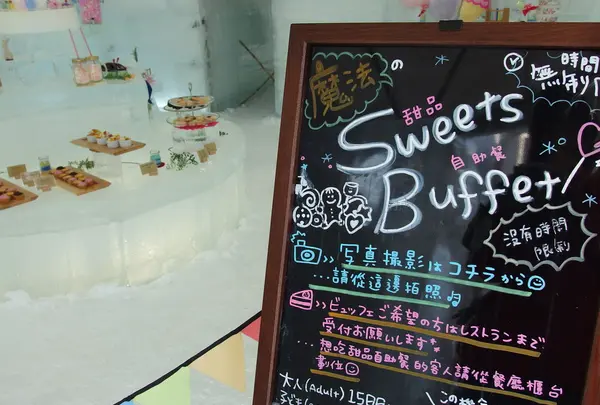 魔法の
甜品
Sweets
自助餐
Buffet
時間
無制
没有時間
限制
>> 写真撮影はコチラから
...請從這邊拍照♫
>> ビュッフェご希望の方はレストランまで
受付お願いします*
...想吃甜品自助餐的客人請從餐廳櫃台
劃位
大人(Adult)
この機会